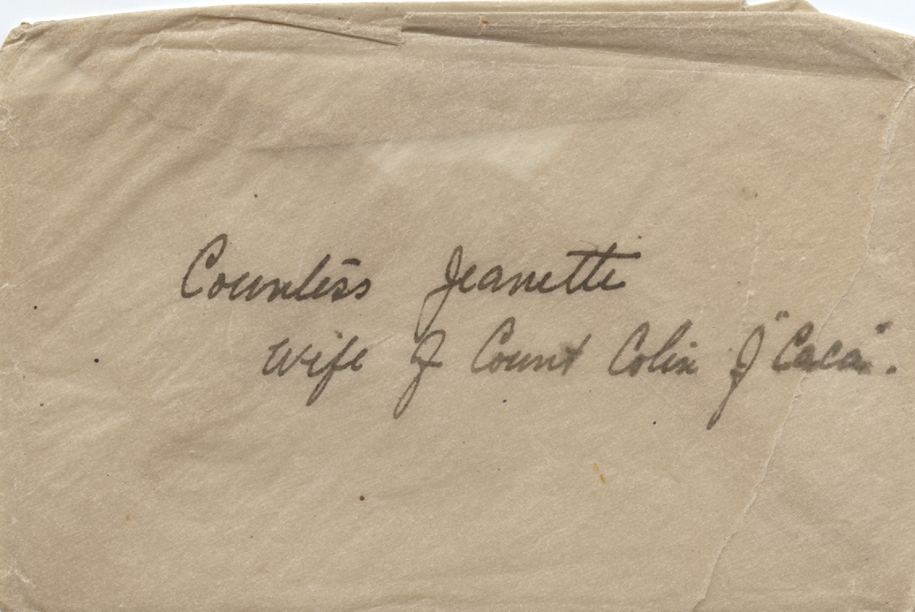 Countess Jeanette
Wife of Count Colin of "Caca".